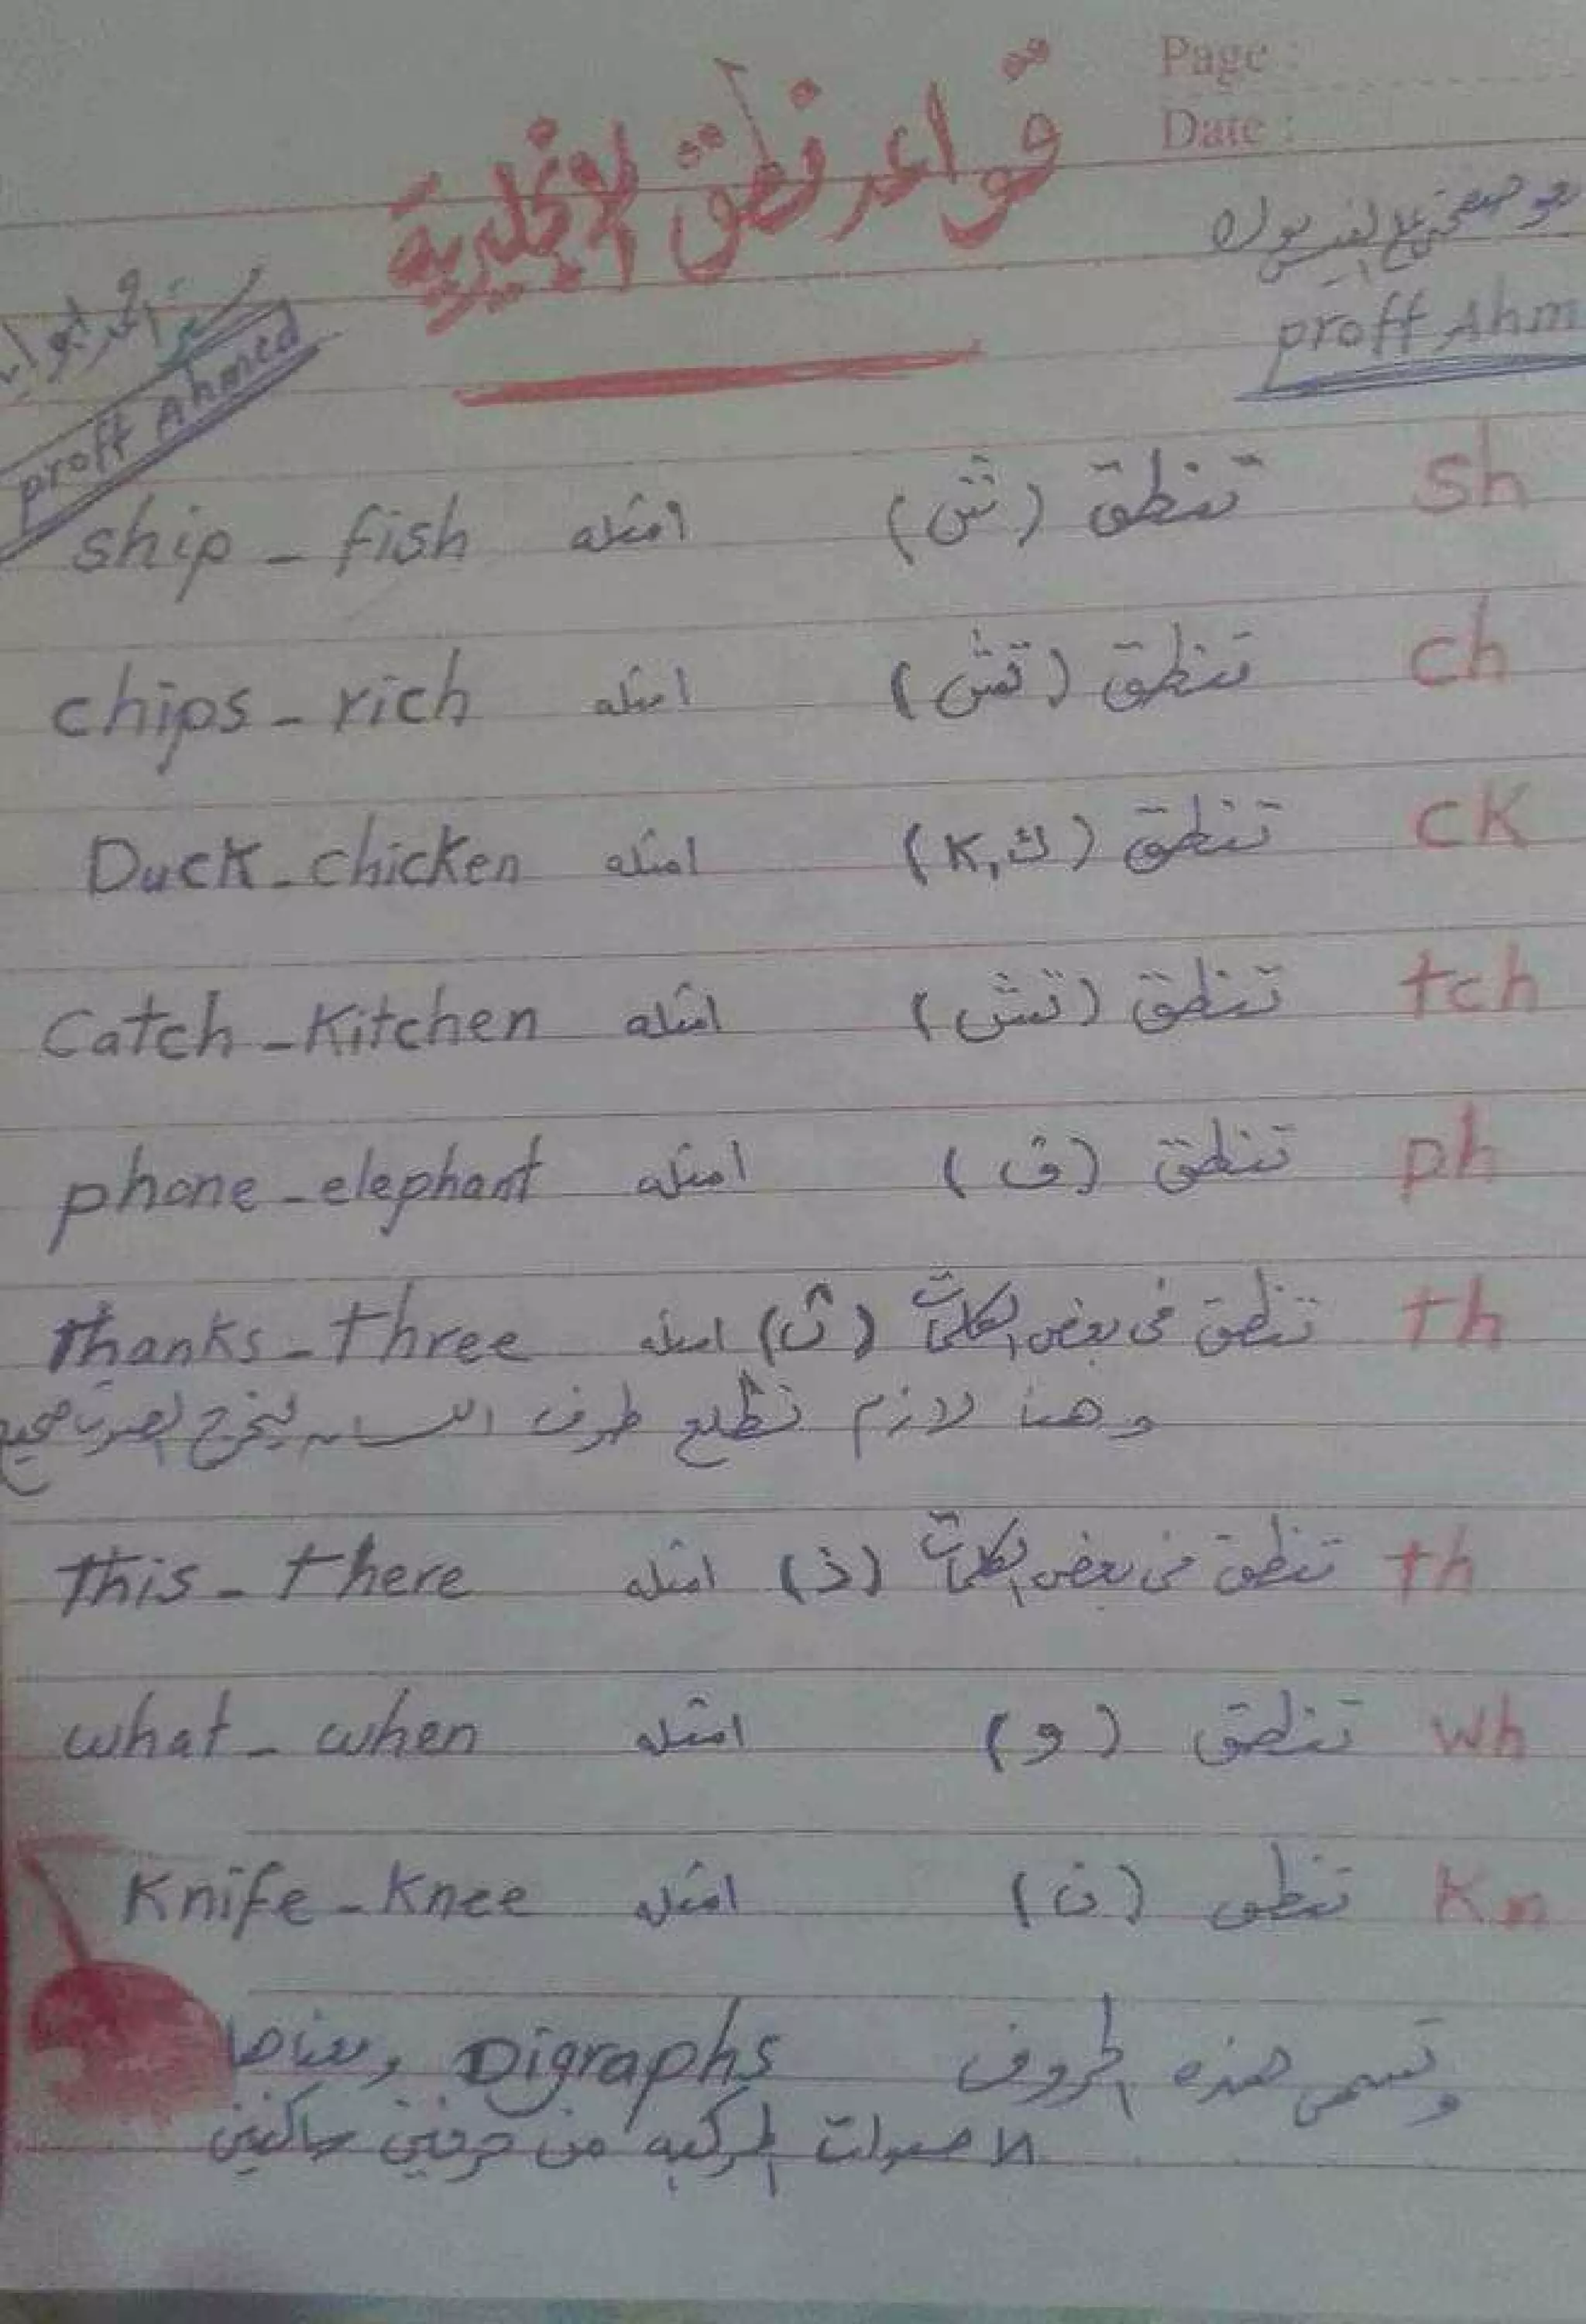 Page :
Date :
قواعد نطق الإنجليزية
proff Ahmed
proff Ahm
sh تنطق (ش) امثله ship - fish
ch تنطق (تش) امثله chips - rich
cK تنطق (ك , K) امثله Duck - chicken
tch تنطق (تش) امثله Catch - Kitchen
ph تنطق (ف) امثله phone - elephant
th تنطق فى بعض الكلمات (ث) امثله thanks - three
وهنا لازم نطلع طرف اللسان ليخرج الصوت صحيح
th تنطق فى بعض الكلمات (ذ) امثله this - there
wh تنطق (و) امثله what - when
Kn تنطق (ن) امثله Knife - Knee
وتسمى هذه الحروف Digraphs ومعناها
الاصوات المركبه من حرفين ساكنين